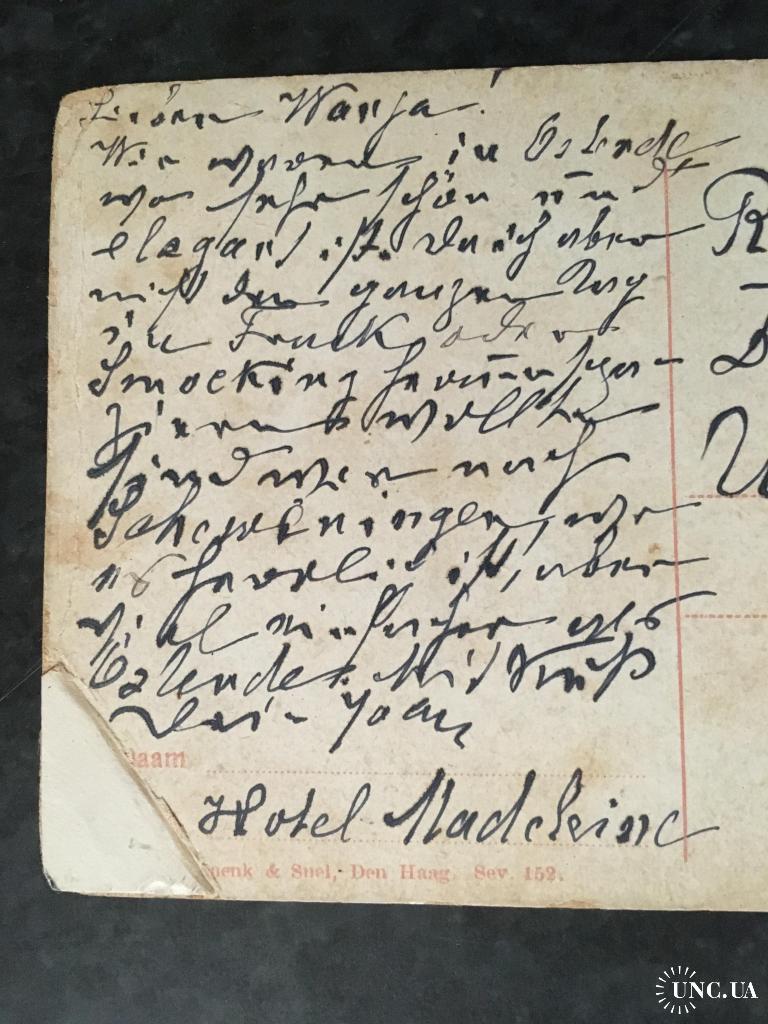 Lieber Wanja!
Wir waren in Ostende
wo sehr schön un
elegant ist. Da ich aber
nicht den ganzen Tag
in Frack oder
Smocking herumspa-
zieren wollte
sind wir nach
Scheveningen, wo
es herrlich ist, aber
viel einfacher als
Ostende. Mit Kuß
Dein
Hotel Madeleine
aam
enk & Snel, Den Haag. Sev. 152.
R
D
U
UNC.UA